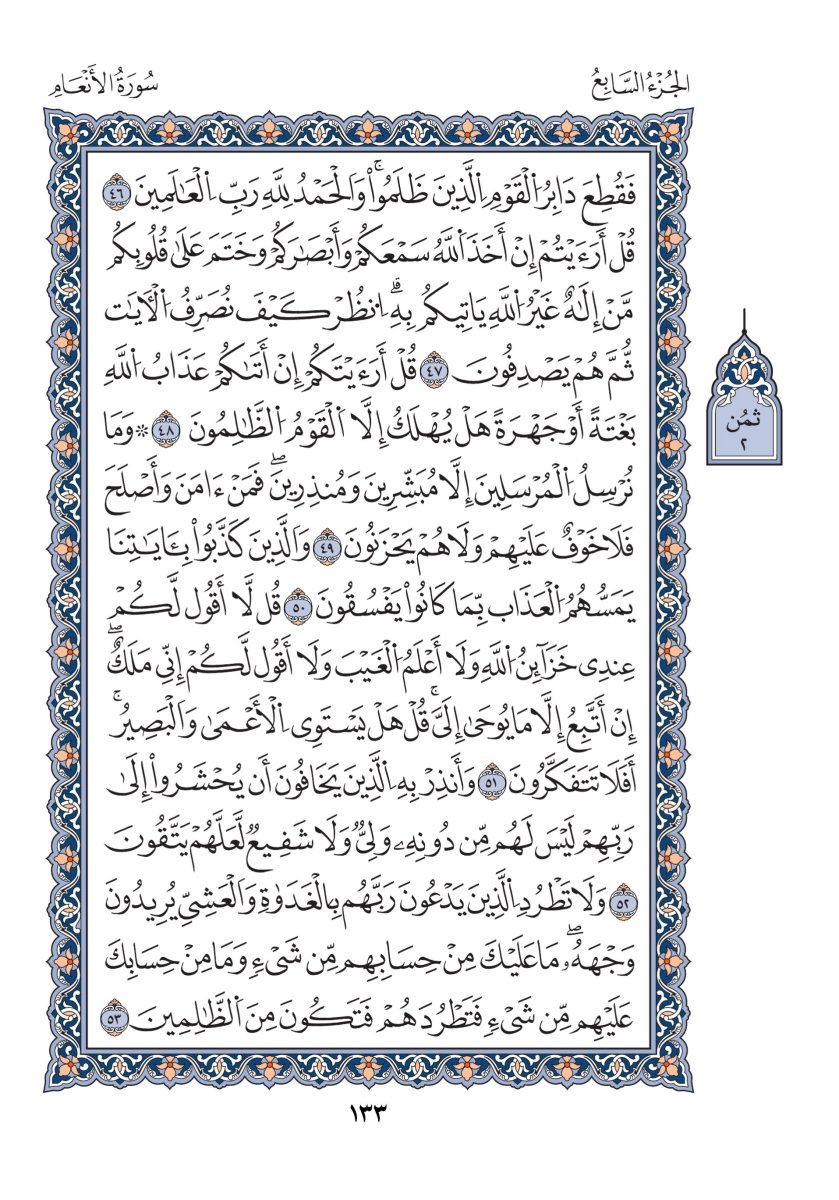 الجُزْءُ السَّابِعُ
سُورَةُ الأَنْعَامِ
فَقُطِعَ دَابِرُ اُ۬لْقَوْمِ اِ۬لَّذِينَ ظَلَمُواْۚ وَالْحَمْدُ لِلهِ رَبِّ اِ۬لْعَٰلَمِينَ ٤٦
قُلْ أَرَءَيْتُمْ إِنْ أَخَذَ اَ۬للَّهُ سَمْعَكُمْ وَأَبْصَٰرَكُمْ وَخَتَمَ عَلَىٰ قُلُوبِكُم
مَّنْ إِلَٰهٌ غَيْرُ اُ۬للَّهِ يَاتِيكُم بِهِۗ اِ۟نظُرْ كَيْفَ نُصَرِّفُ اُ۬لْأٓيَٰت
ثُّمَّ هُمْ يَصْدِفُونَ ٤٧ قُلْ أَرَءَيْتَكُمْ إِنْ أَتَىٰكُمْ عَذَابُ اُ۬للَّهِ
بَغْتَةً أَوْ جَهْرَةً هَلْ يُهْلَكُ إِلَّا اَ۬لْقَوْمُ اُ۬لظَّٰلِمُونَ ٤٨ ۞ وَمَا
نُرْسِلُ اُ۬لْمُرْسَلِينَ إِلَّا مُبَشِّرِينَ وَمُنذِرِينَۖ فَمَنْ ءَامَنَ وَأَصْلَحَ
فَلَا خَوْفٌ عَلَيْهِمْ وَلَا هُمْ يَحْزَنُونَ ٤٩ وَالَّذِينَ كَذَّبُواْ بِـَٔايَٰتِنَا
يَمَسُّهُمُ اُ۬لْعَذَاب بِّمَا كَانُواْ يَفْسُقُونَ ٥٠ قُل لَّا أَقُول لَّكُمْ
عِندِى خَزَآئِنُ اُ۬للَّهِ وَلَا أَعْلَمُ اُ۬لْغَيْبَ وَلَا أَقُول لَّكُمْ إِنِّى مَلَكٌۖ
إِنْ أَتَّبِعُ إِلَّا مَا يُوحَىٰ إِلَىَّۚ قُلْ هَلْ يَسْتَوِى اِ۬لْأَعْمَىٰ وَالْبَصِيرُۚ
أَفَلَا تَتَفَكَّرُونَ ٥١ وَأَنذِرْ بِهِ اِ۬لَّذِينَ يَخَافُونَ أَن يُحْشَرُواْ إِلَىٰ
رَبِّهِمْ لَيْسَ لَهُم مِّن دُونِهِۦ وَلِىٌّ وَلَا شَفِيعٌ لَّعَلَّهُمْ يَتَّقُونَ
٥٢ وَلَا تَطْرُدِ اِ۬لَّذِينَ يَدْعُونَ رَبَّهُم بِالْغَدَوٰةِ وَالْعَشِىِّ يُرِيدُونَ
وَجْهَهُۥۖ مَا عَلَيْكَ مِنْ حِسَابِهِم مِّن شَىْءٍ وَمَا مِنْ حِسَابِكَ
عَلَيْهِم مِّن شَىْءٍ فَتَطْرُدَهُمْ فَتَكُونَ مِنَ اَ۬لظَّٰلِمِينَ ٥٣
ثمُن
٢
١٣٣